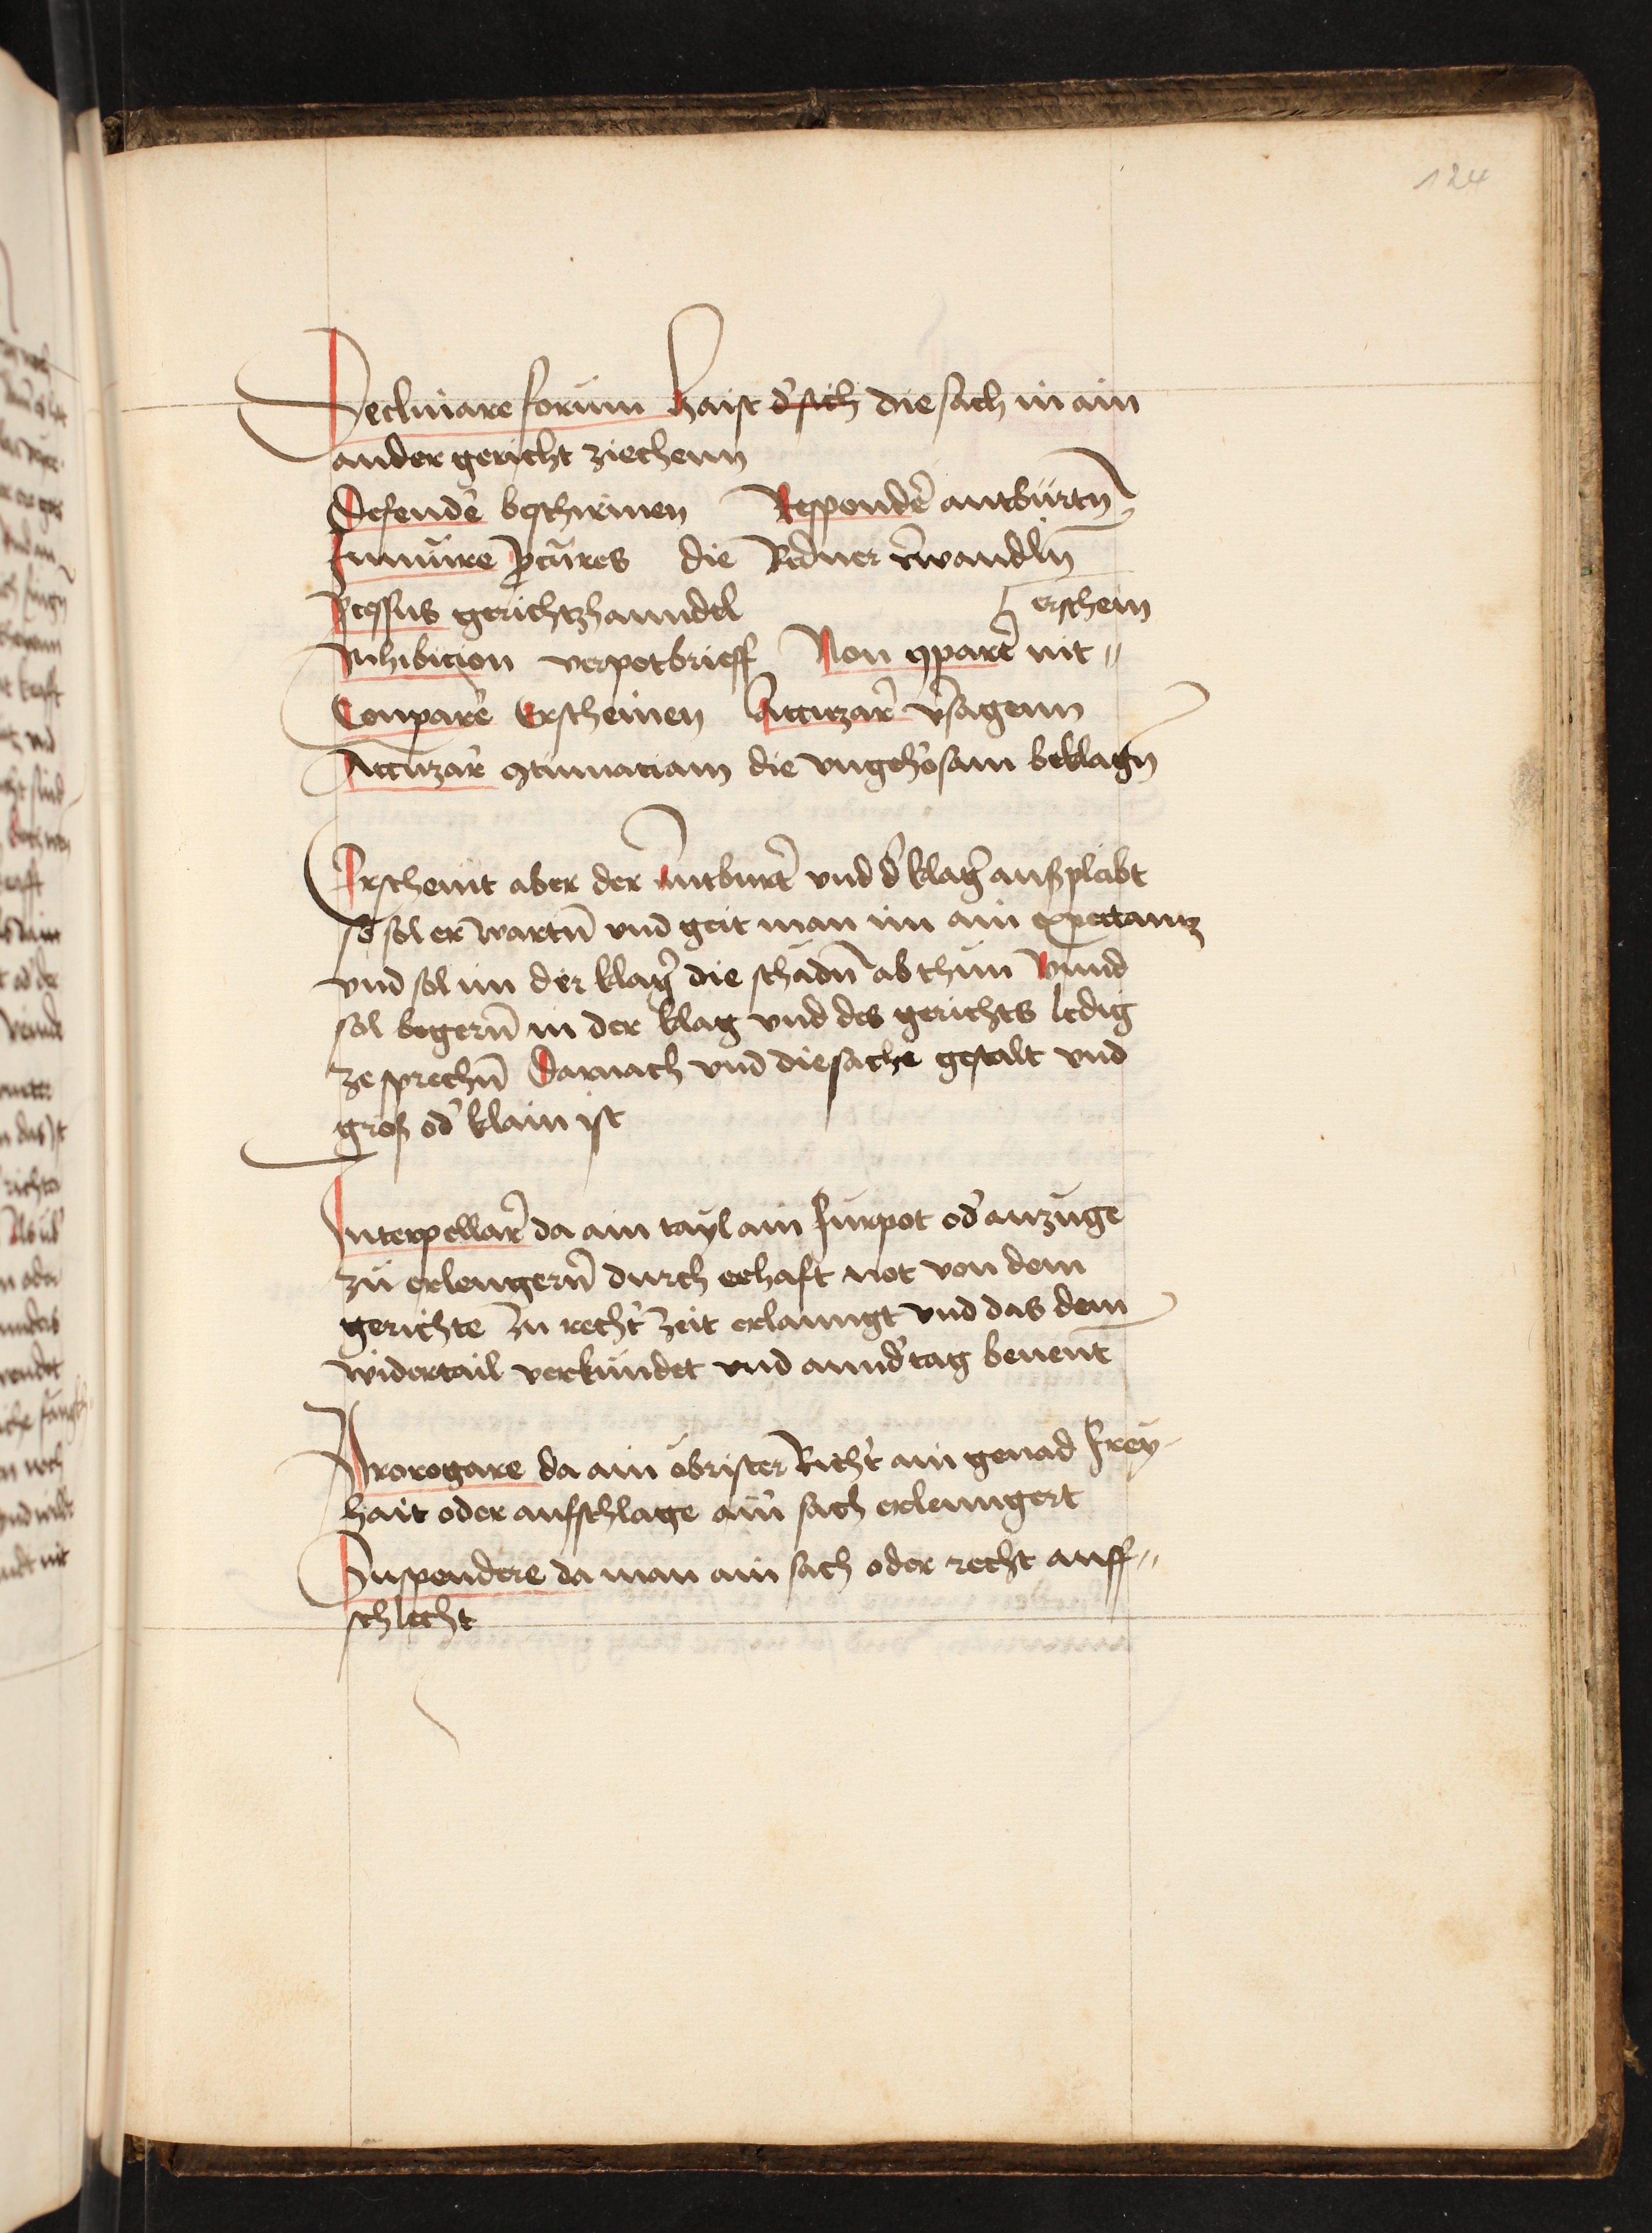 124
Declinare forum haist d' sich die sach in ain
ander gericht ziechenn
Defende᷑ beschirmen Responde᷑ antbürtn̄
Innuire p̱cūres die Redner v᷑wandln̄
P̱cessus gerichtzhanndel [erschein
Inhibicion verpotbrieff Non ꝯpare᷑ nit〃
Conpare᷑ Erscheinen Accuzar᷑ v᷑sagenn
Accuzar᷑ ꝯtumaciam die vngeho᷑sam beklagn̄
Erscheint aber der Antburt᷑ vnd d᷑ klag᷑ ausspleibt
so sol er wartn̄ vnd geit man im ain expectantz
vnd sol im der klag᷑ die schadn̄ ab thun Vnnd
sol begern̄ in der klag vnd des gerichts ledig
ze sprechn̄ Darnach vnd die sache gestalt vnd
groß od᷑ klain ist
Interpellar᷑ da ain tayl ain furpot od᷑ anzuge
zu erlengern̄ durch eehaft not von dem
gerichte zu recht᷑ zeit erlanngt vnd das dem
widertail verkündet vnd annd᷑ tag benent
Prorogare da ain obrister Richt᷑ ain genad frey-
hait oder aufschlage ain᷑ sach erlenngert
Suspendere da man ain sach oder recht auff〃
schlecht